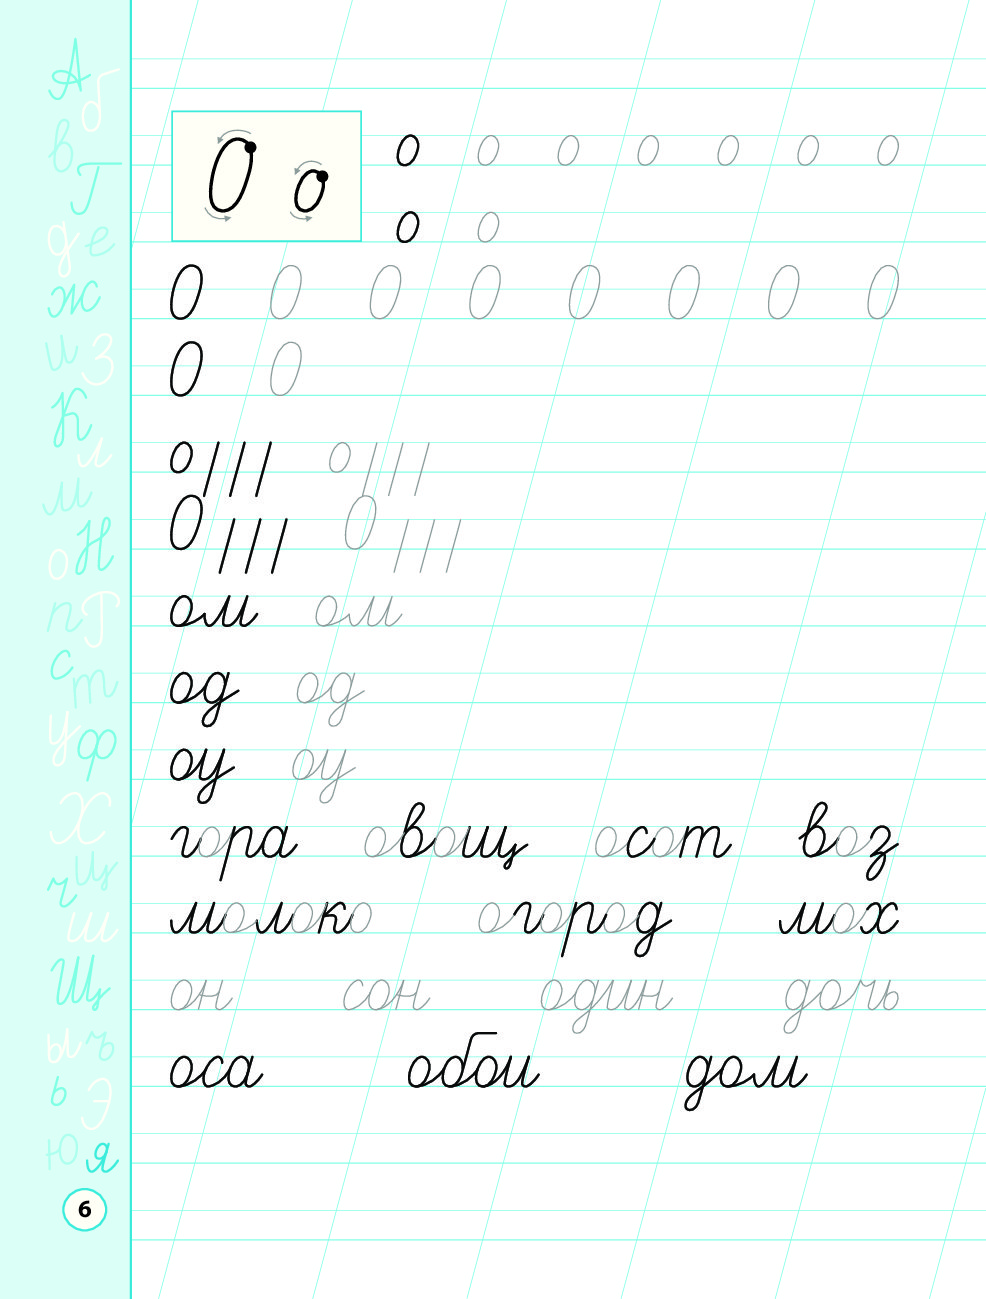 А
б
в
Г
д е
ж
и З
К
л
м
о Н
п Т
с
т
у ф
Х
ц
ч
ш
Щ
ы ъ
ь Э
Ю я
6
О о
о о о о о о о
о о
О О О О О О О О
О О
о о
О О
ом ом
од од
оу оу
гора овощ ост воз
молоко огород мох
он сон один дочь
оса обои дом